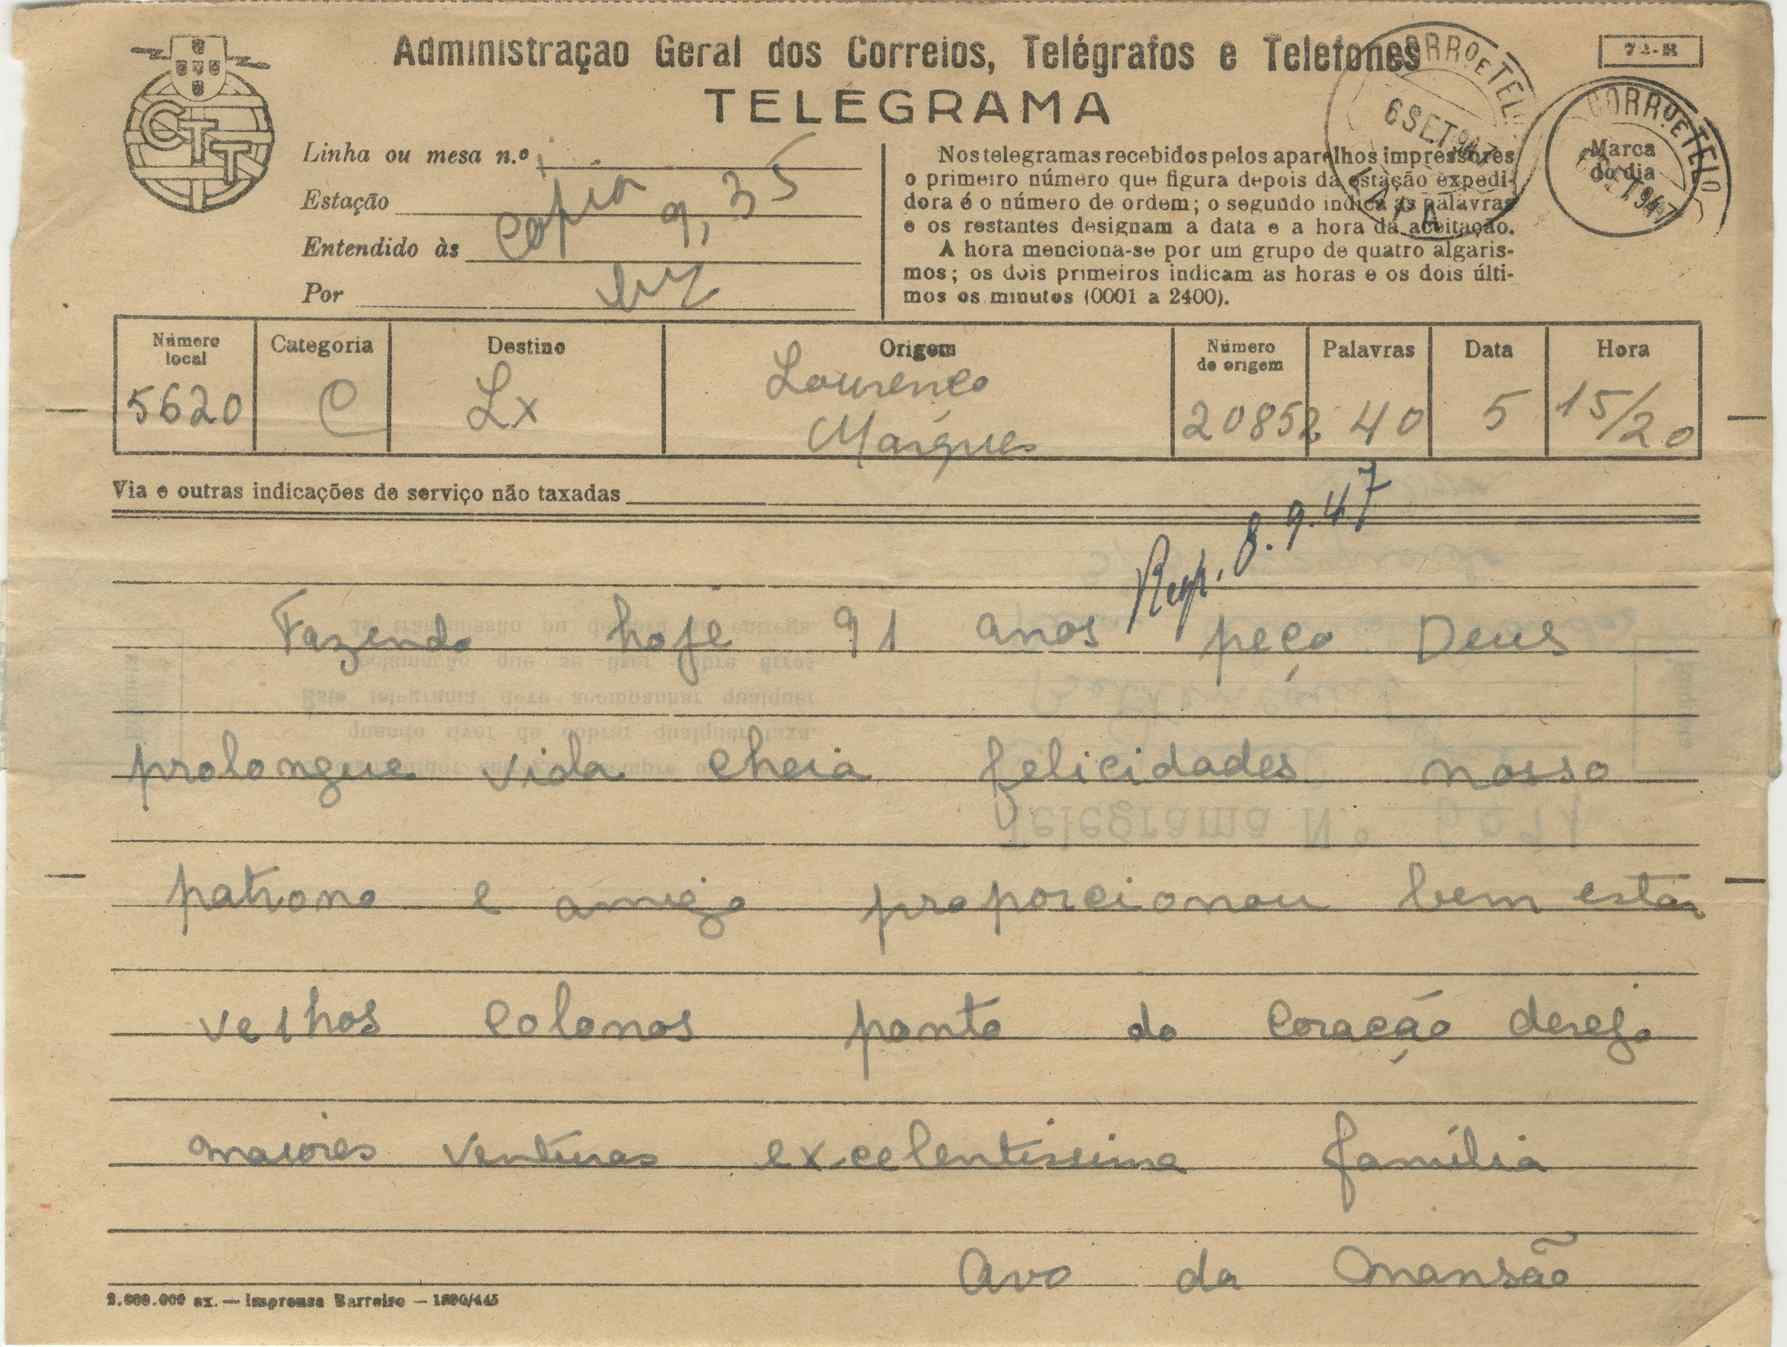 Administração Geral dos Correios, Telégrafos e Telefones
TELEGRAMA
72-R
CTT
Linha ou mesa n.º
Estação
Entendido às
Por
copia 9,35
Nos telegramas recebidos pelos aparelhos impressores
o primeiro número que figura depois da estação expedi-
dora é o número de ordem; o segundo indica as palavras
e os restantes designam a data e a hora da aceitação.
A hora menciona-se por um grupo de quatro algaris-
mos; os dois primeiros indicam as horas e os dois últi-
mos os minutos (0001 a 2400).
CORR.º E TEL
6 SET. 947
CORR.º E TELO
Marca
do dia
SET. 947
Número local Categoria Destino Origem Número de origem Palavras Data Hora
5620 C Lx Lourenço Marques 20852 40 5 15/20
Via e outras indicações de serviço não taxadas
Resp. 8.9.47
Fazendo hoje 91 anos peço Deus
prolongue vida cheia felicidades nosso
patrono e amigo proporcionou bem estar
velhos colonos ponto do coração desejo
maiores venturas excelentissima família
Avo da Mansão
2.000.000 ex. — Imprensa Barreiro — 1890/445
Telegrama N.º